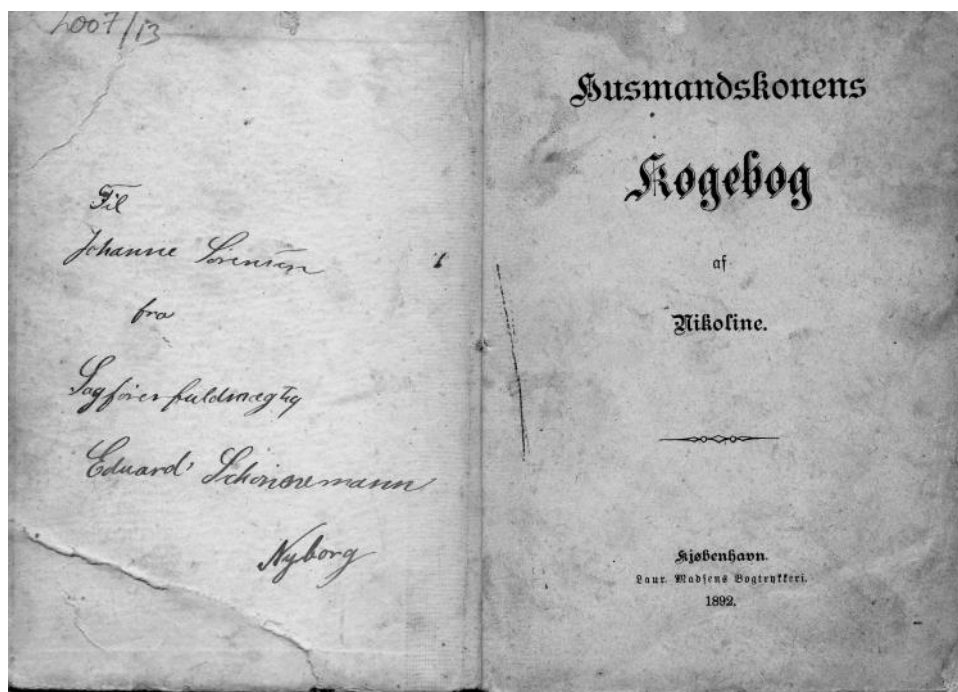 2007/13
Til
Johanne Sørensen
fra
Sagførerfuldmægtig
Eduard Schønnemann
Nyborg
Husmandskonens
Kogebog
af
Nikoline.
Kjøbenhavn.
Laur. Madsens Bogtrykkeri.
1892.